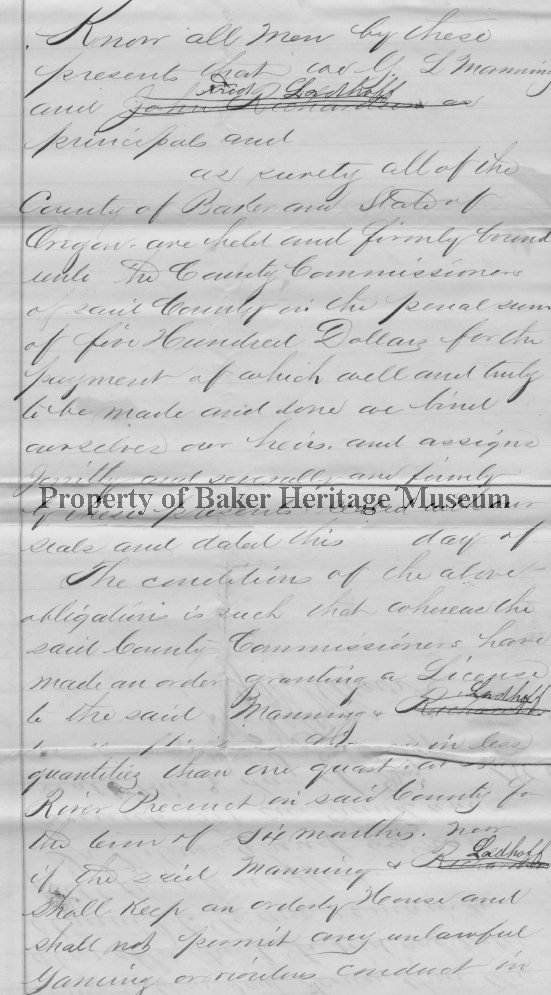 Know all Men by these
presents that we G L Manning
Fred Ladhoff
and John Richardson as
principals and
as surety all of the
County of Baker and State of
Oregon. are held and firmly bound
unto The County Commissioners
of said County in the penal sum
of five Hundred Dollars for the
payment of which well and truly
to be made and done we bind
ourselves our heirs. and assigns
Jointly and severally and firmly
Property of Baker Heritage Museum
by these presents
seals and dated this day of
The conditions of the above
obligation is such that whereas the
said County Commissioners have
made an order granting a License
Ladhoff
to the said Manning &
in less
quantities than one quart. at
River Precinct in said County for
the term of six months. now
Ladhoff
if the said Manning &
shall keep an orderly House and
shall not permit any unlawful
Gaming or riotous conduct in